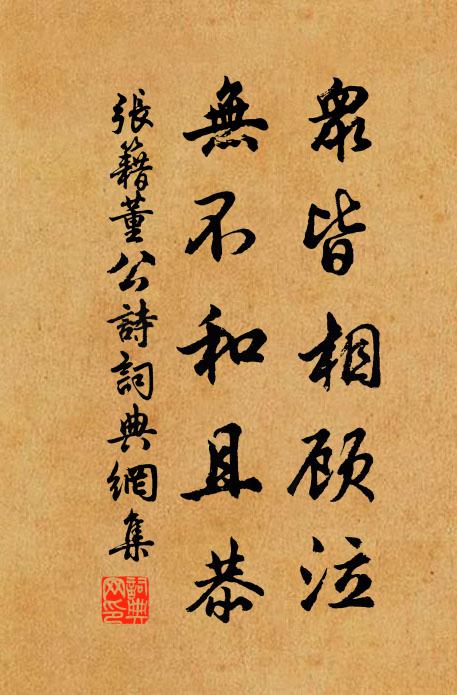 眾皆相顾泣
無不和且恭
張籍董公詩詞典網集
詞典網印